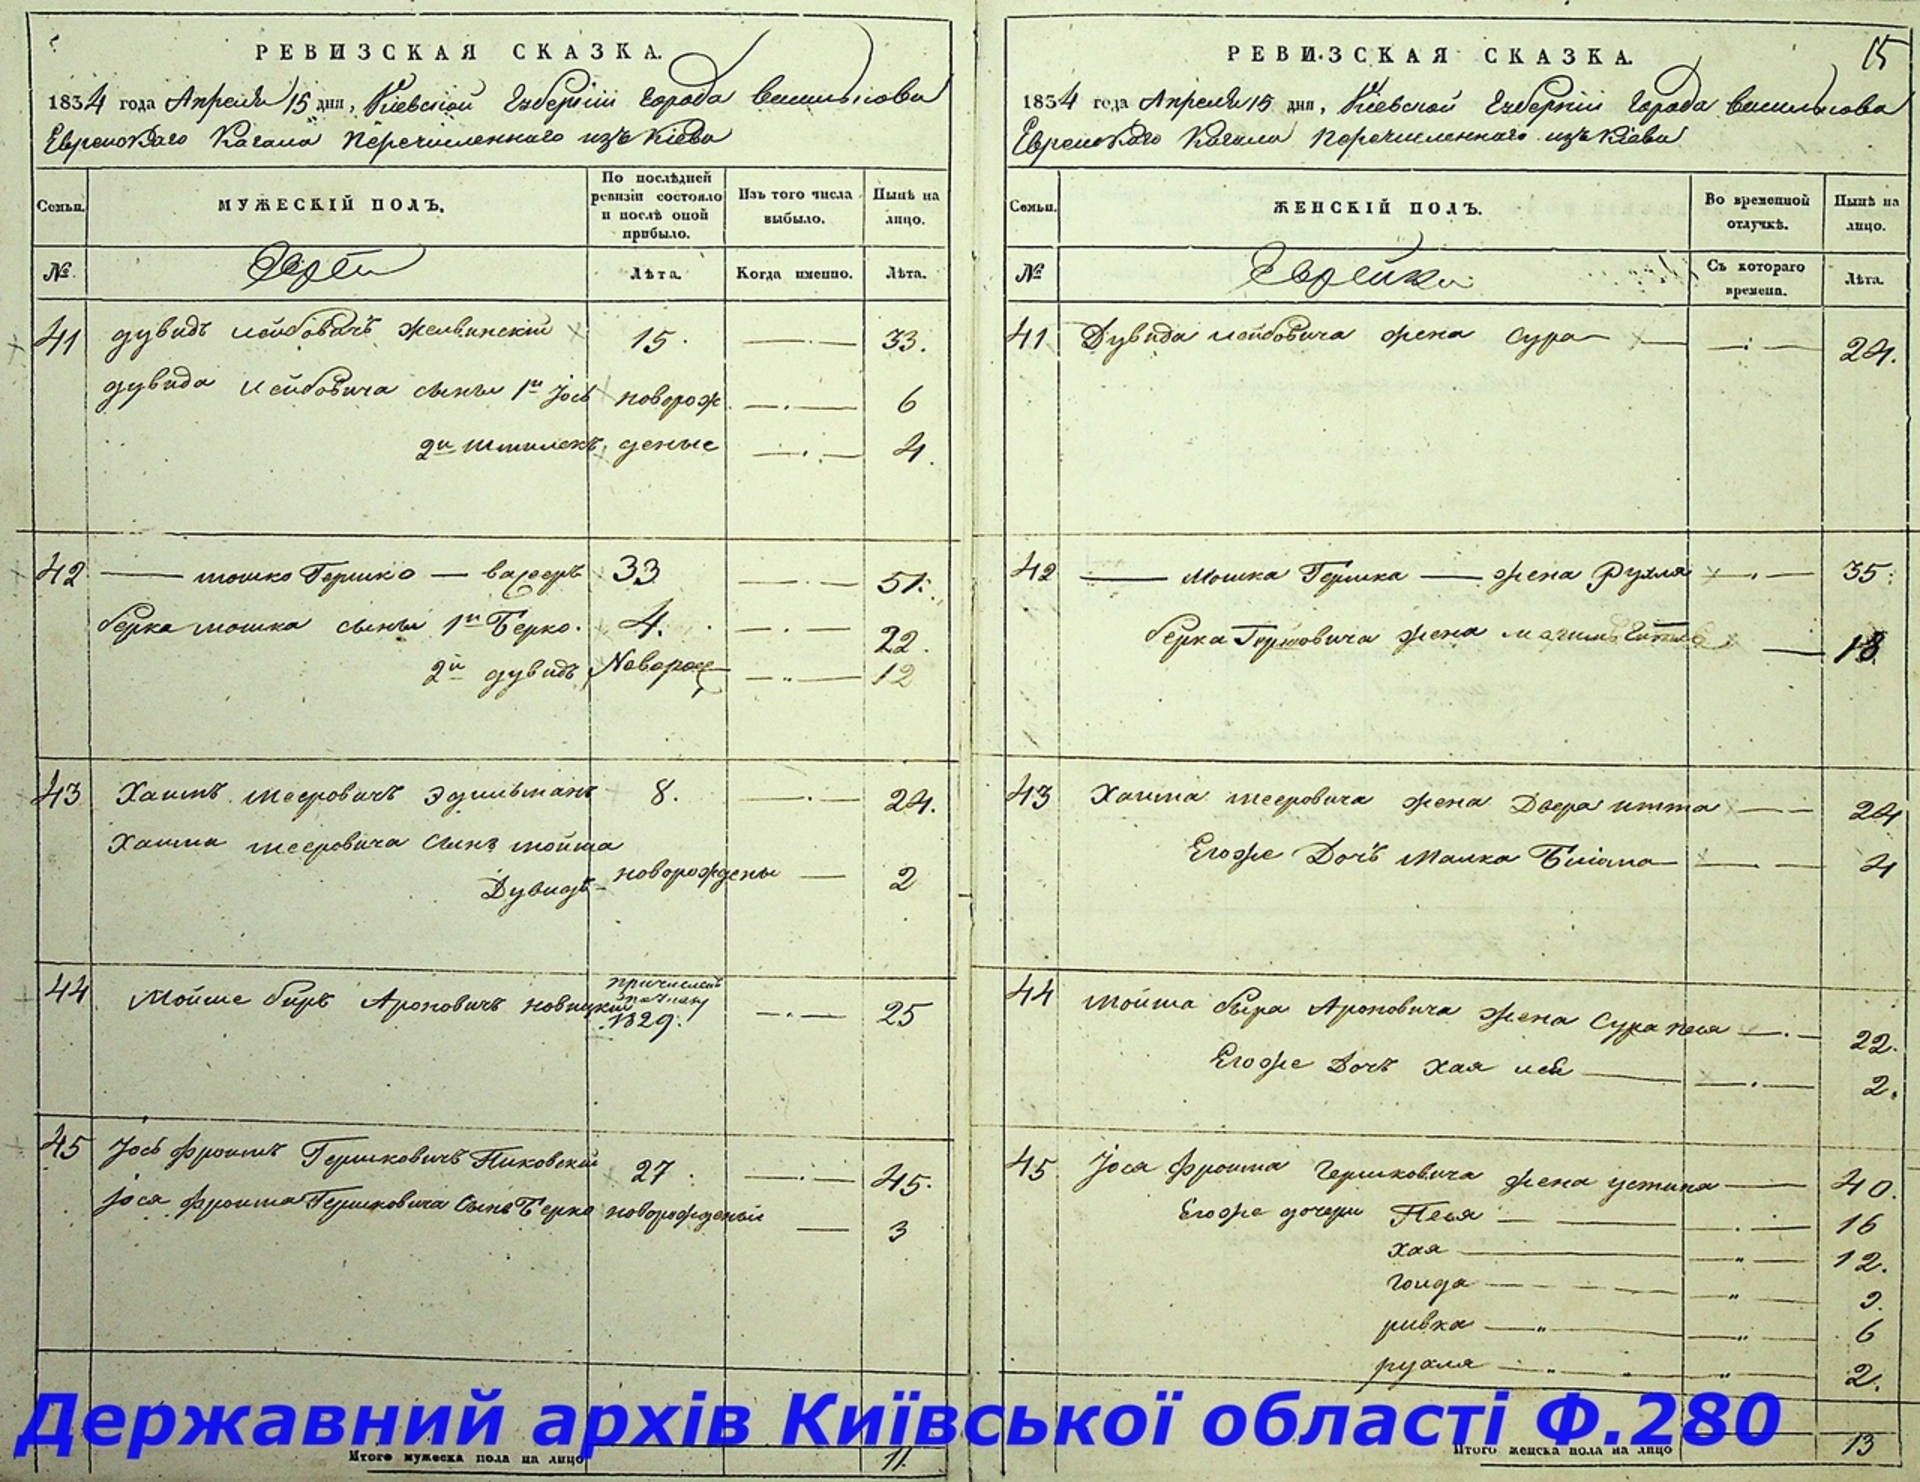 РЕВИЗСКАЯ СКАЗКА.
1834 года Апреля 15 дня, Кіевской Губерніи города Василькова
Еврейскаго Кагала перечисленнаго изъ Кіева
Семьи.
МУЖЕСКІЙ ПОЛЪ.
По послѣдней ревизіи состояло и послѣ оной прибыло.
Изъ того числа выбыло.
Нынѣ на лицо.
№ Евреи Лѣта. Когда именно. Лѣта.
41 дувидъ лейбовичъ 15. — . — 33.
дувида лейбовича сыны 1й Іось новорож — . — 6
2й деные — . — 4.
42 — мошко Гершко — 33 — . — 51.
берка мошка сыны 1й Берко. 4. — . — 22.
2й дувидъНоворож — „ — 12
43 Хаимъ мееровичъ Эдильманъ 8. — . — 24.
Хаима мееровича сынъ мойша
Дувидъ — новорождены — 2
44 Мойше беръ Ароновичъ новицкій причисленъ
№ 29. — . — 25
45 Іось фроимъ Гершковичъ 27 — . — 45.
Іося фроима Гершковича сынъ Берко новорожденый — 3
Итого мужеска пола на лицо 11.
РЕВИЗСКАЯ СКАЗКА.
15
1834 года Апреля 15 дня, Кіевской Губерніи города Василькова
Еврейскаго Кагала перечисленнаго изъ Кіева
Семьи.
ЖЕНСКІЙ ПОЛЪ.
Во временной отлучкѣ.
Нынѣ на лицо.
№ Еврейки Съ котораго времени. Лѣта.
41 Дувида лейбовича жена сура — — . — 24.
42 — мошка Гершка — жена Рухля — . — 35.
берка жена — 18
43 Хаима мееровича жена Двера итта — — 24
Егоже Дочь малка — — — 4
44 мойша бера Ароновича жена Сура песя — . — 22.
Егоже Дочь хая лея — — . — 2.
45 Іося фроима гершковича жена устина — — 40.
Егоже дочери Песя — — — . — 16
хая — — „ — 12.
гонда — — — „ — 9.
ривка — „ — — „ — 6
рухля — „ — „ — „ — 2.
Державний архів Київської області Ф.280
Итого женска пола на лицо 13